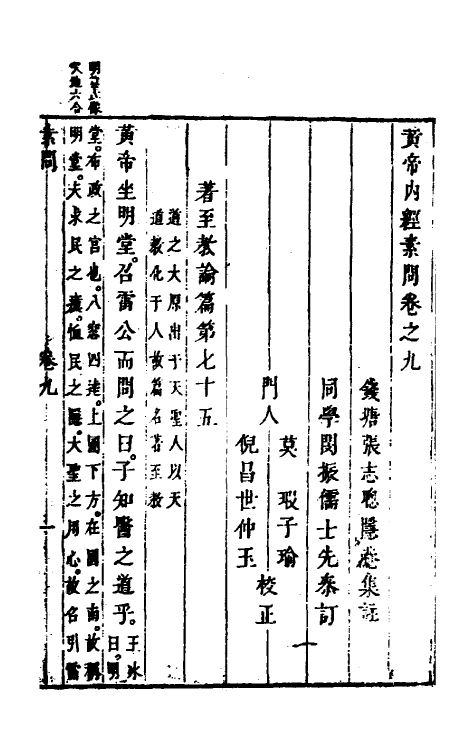 黃帝內經素問卷之九
錢塘張志聰隱菴集註
同學閔振儒士先叅訂
莫瑕子瑜
門人
校正
倪昌世仲玉
著至教論篇第七十五
道之大原出于天聖人以天
道教化于人故篇名著至教
黃帝坐明堂召雷公而問之曰子知醫之道乎王冰
曰明
堂布政之宮也八窓四達上圓下方在國之南故稱
明堂夫求民之瘼恤民之隱大聖之用心故名引雷
素問
卷九
一